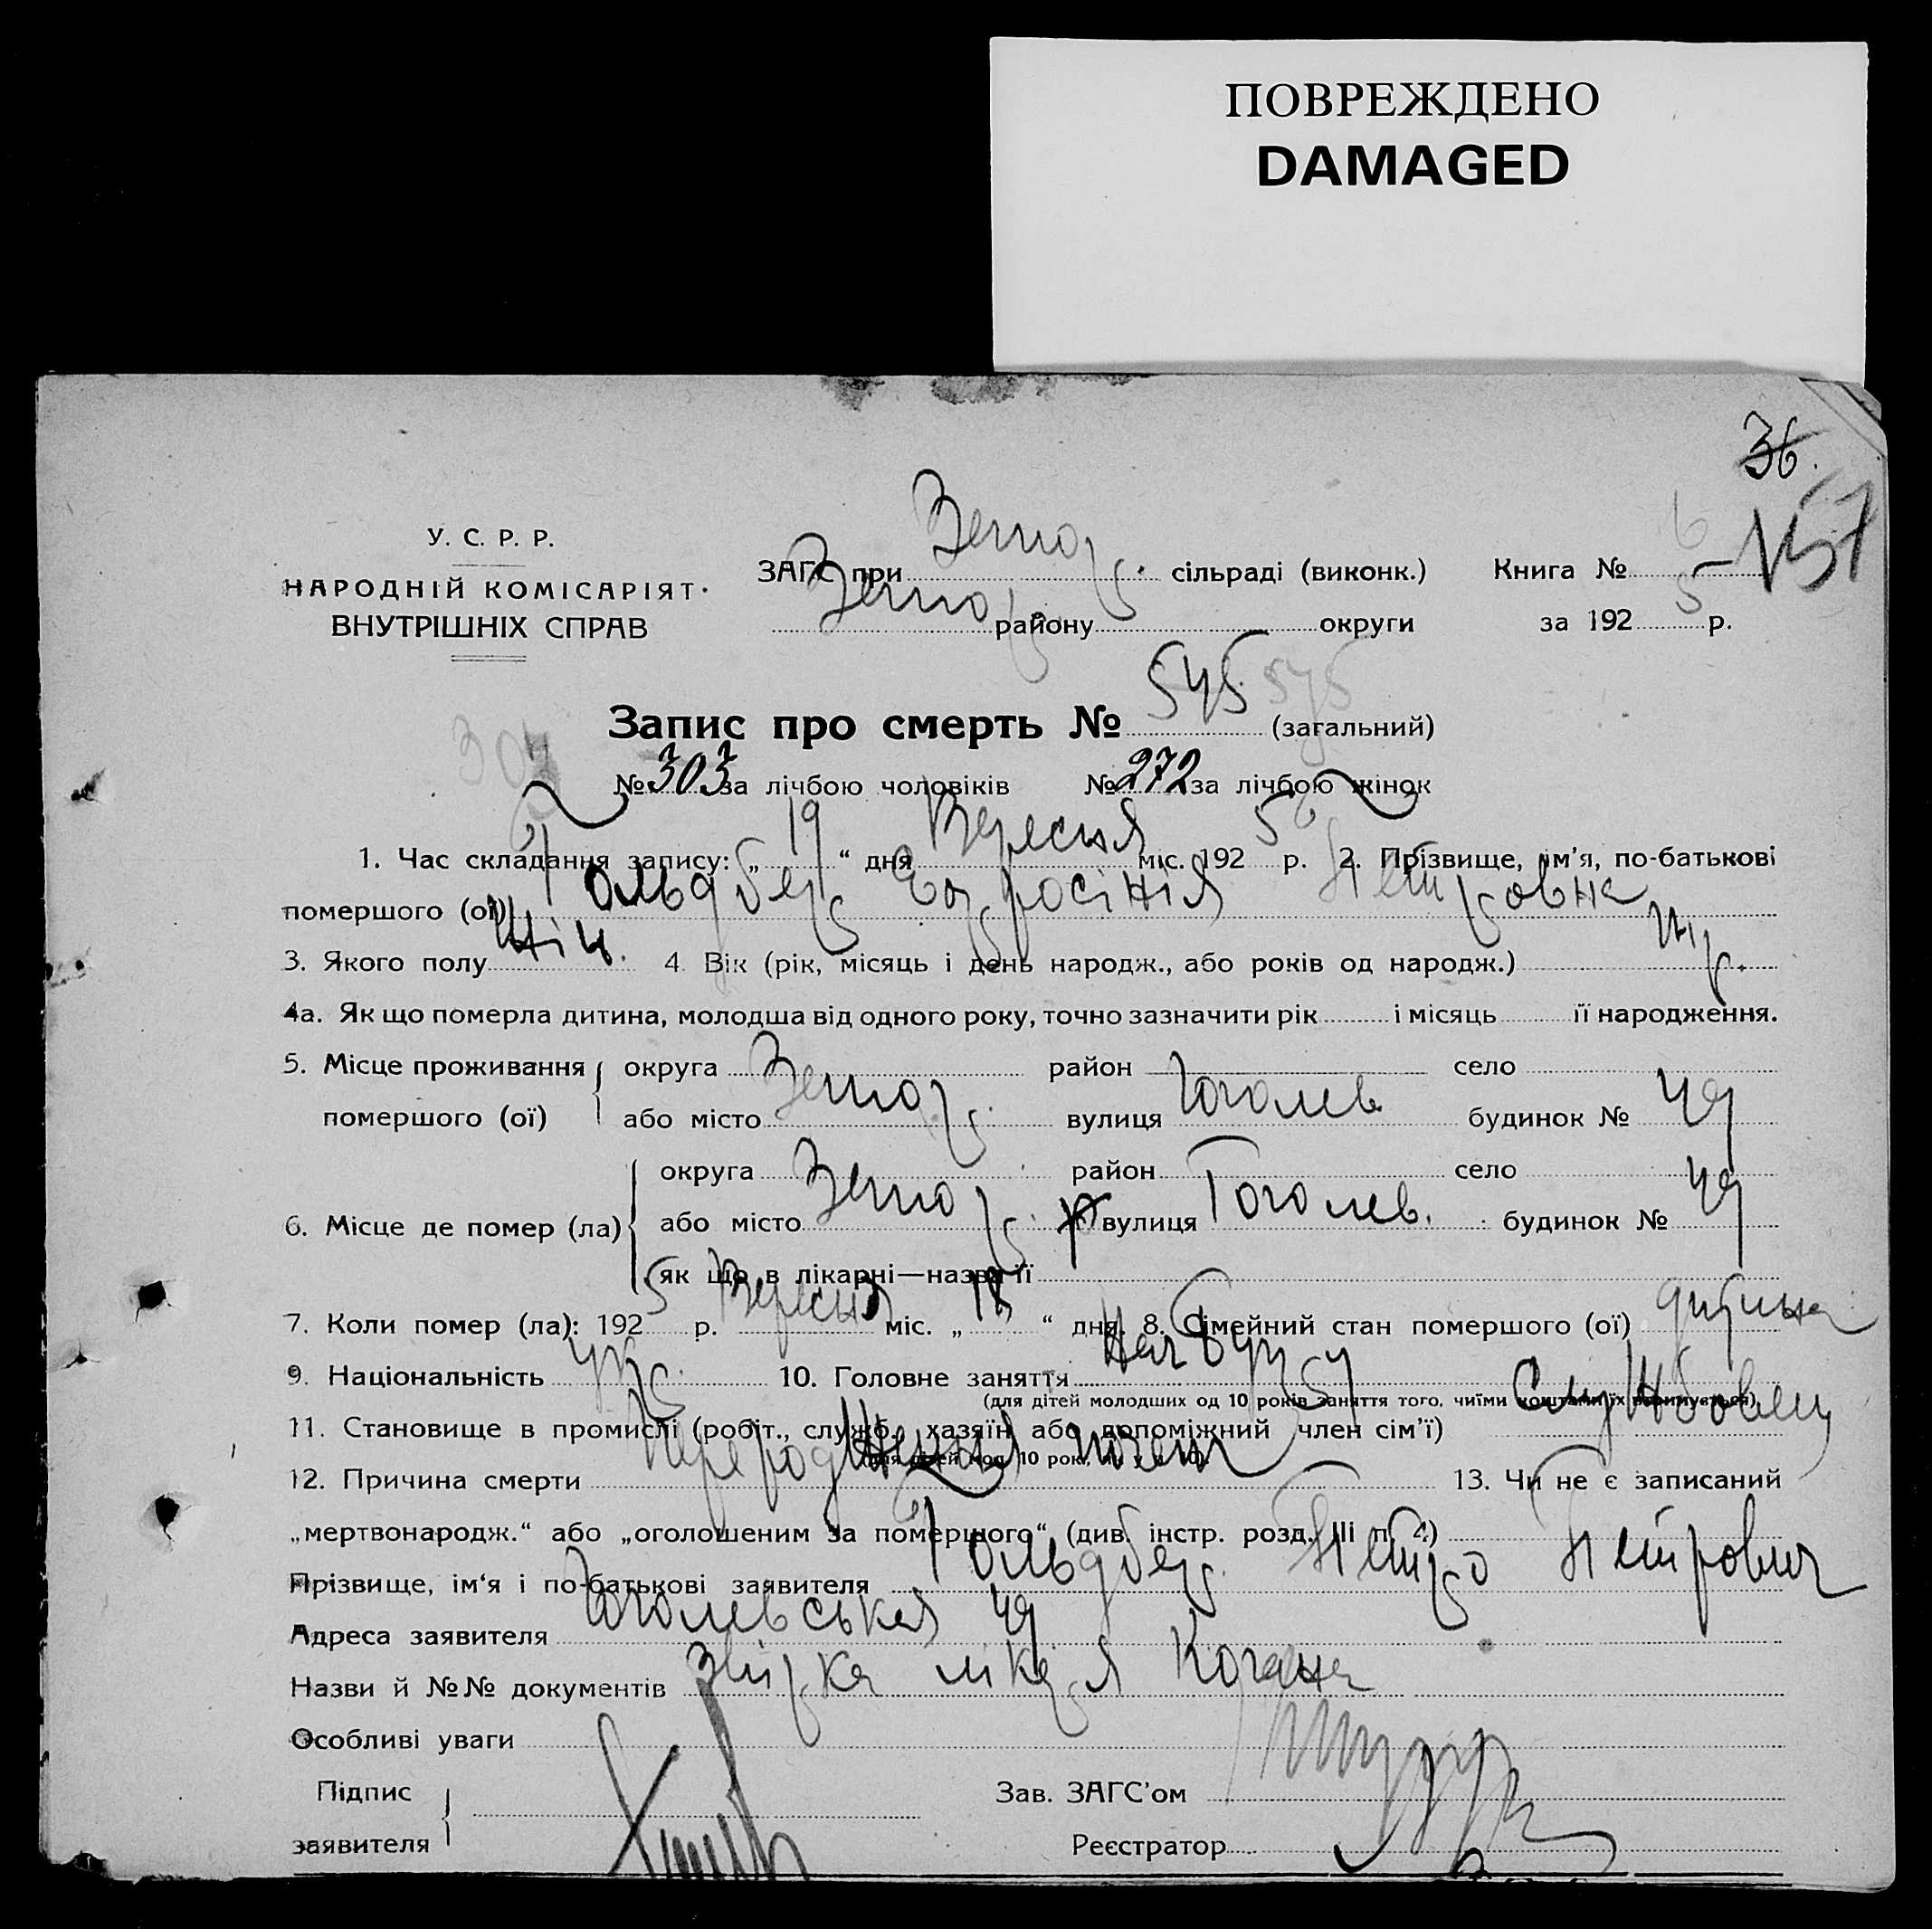 ПОВРЕЖДЕНО
DAMAGED
36.
У. С. Р. Р.
НАРОДНІЙ КОМІСАРІЯТ
ВНУТРІШНІХ СПРАВ
ЗАГС при сільраді (виконк.) Книга №
району округи за 192 5 р.
Запис про смерть № 545 (загальний)
№ 303 за лічбою чоловіків № 272 за лічбою жінок
1. Час складання запису: „ 19 “ дня Вересня міс. 192 5 р. 2. Прізвище, ім’я, по-батькові
помершого (ої) Гольдберг Петровна
3. Якого полу Жін. 4. Вік (рік, місяць і день народж., або років од народж.)
4а. Як що померла дитина, молодша від одного року, точно зазначити рік і місяць її народження.
5. Місце проживання округа район село
помершого (ої) або місто вулиця Гоголев будинок № 49
округа район село
6. Місце де помер (ла) або місто вулиця Гоголев. будинок № 49
як що в лікарні—назва її
7. Коли помер (ла): 192 5 р. Вересня міс. „ “ дня. 8. Сімейний стан помершого (ої) дитина
9. Національність укр. 10. Головне заняття
(для дітей молодших од 10 років заняття того, чиїми коштами їх
11. Становище в промислі (робіт., служб., хазяїн або допоміжний член сім’ї) Службовец
12. Причина смерти 13. Чи не є записаний
„мертвонародж.“ або „оголошеним за помершого“ (див. інстр. розд. III п. 4)
Прізвище, ім‘я і по-батькові заявителя Гольдберг Петро Петрович
Адреса заявителя Гоголевська 49
Назви й №№ документів лікаря Когана
Особливі уваги
Підпис Зав. ЗАГС’ом
заявителя Реєстратор